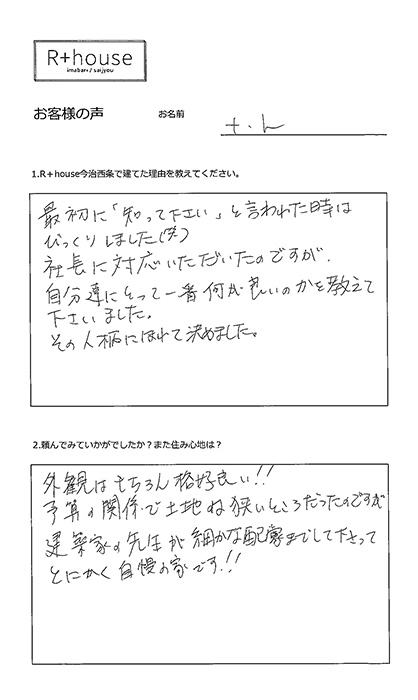 R+house
imabari / saijyou
お客様の声
お名前
t.h
1.R+house今治西条で建てた理由を教えてください。
最初に「知って下さい」と言われた時は
びっくりしました(笑)
社長に対応いただいたのですが、
自分達にとって一番何が良いのかを教えて
下さいました。
その人柄にほれて決めました。
2.頼んでみていかがでしたか？また住み心地は？
外観はもちろん格好良い!!
予算の関係で土地は狭いところだったのですが
建築家の先生が細かな配慮までして下さって
とにかく自慢の家です.!!